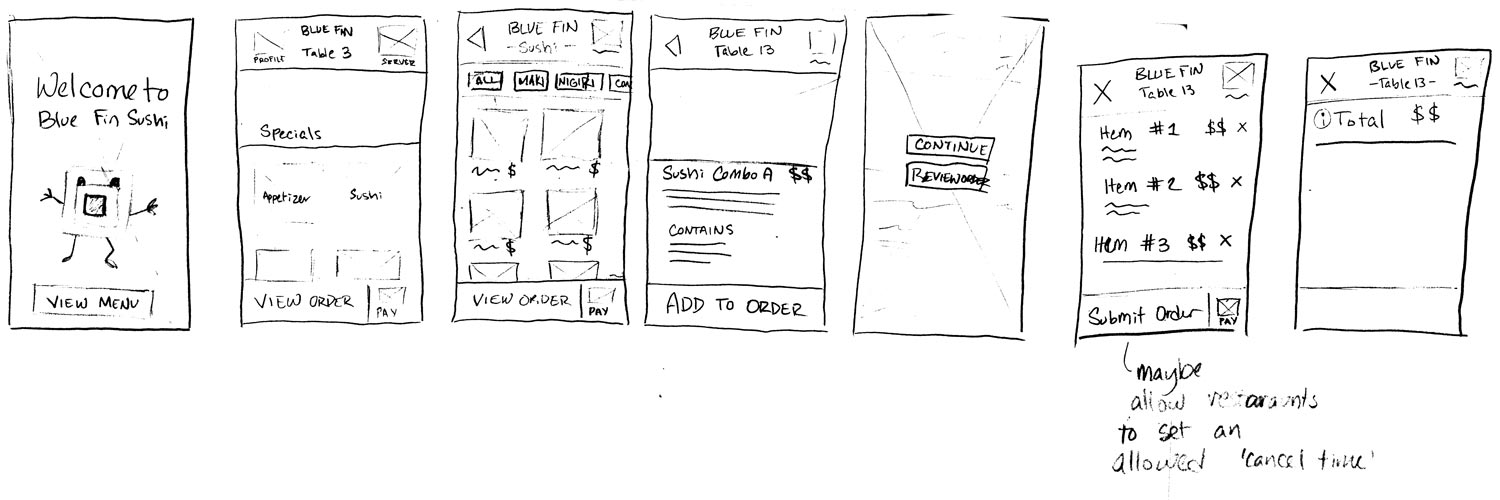 Welcome to
Blue Fin Sushi
VIEW MENU
BLUE FIN
Table 3
PROFILE
SERVER
Specials
Appetizer
Sushi
VIEW ORDER
PAY
BLUE FIN
- Sushi -
ALL
MAKI
NIGIRI
CON
$
$
$
$
VIEW ORDER
PAY
BLUE FIN
Table 13
Sushi Combo A $$
CONTAINS
ADD TO ORDER
CONTINUE
REVIEW ORDER
X
BLUE FIN
Table 13
Item #1 $$ x
Item #2 $$ x
Item #3 $$ x
Submit Order
PAY
maybe
allow restaraunts
to set an
allowed 'cancel time'
X
BLUE FIN
- Table 13 -
i Total $$